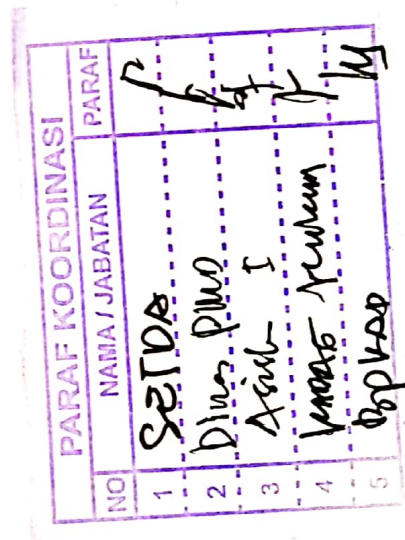 PARAF KOORDINASI
NO NAMA / JABATAN PARAF
1 SETDA
2 Dinas PMD
3 Asisten I
4 hukum
5 BPKAD